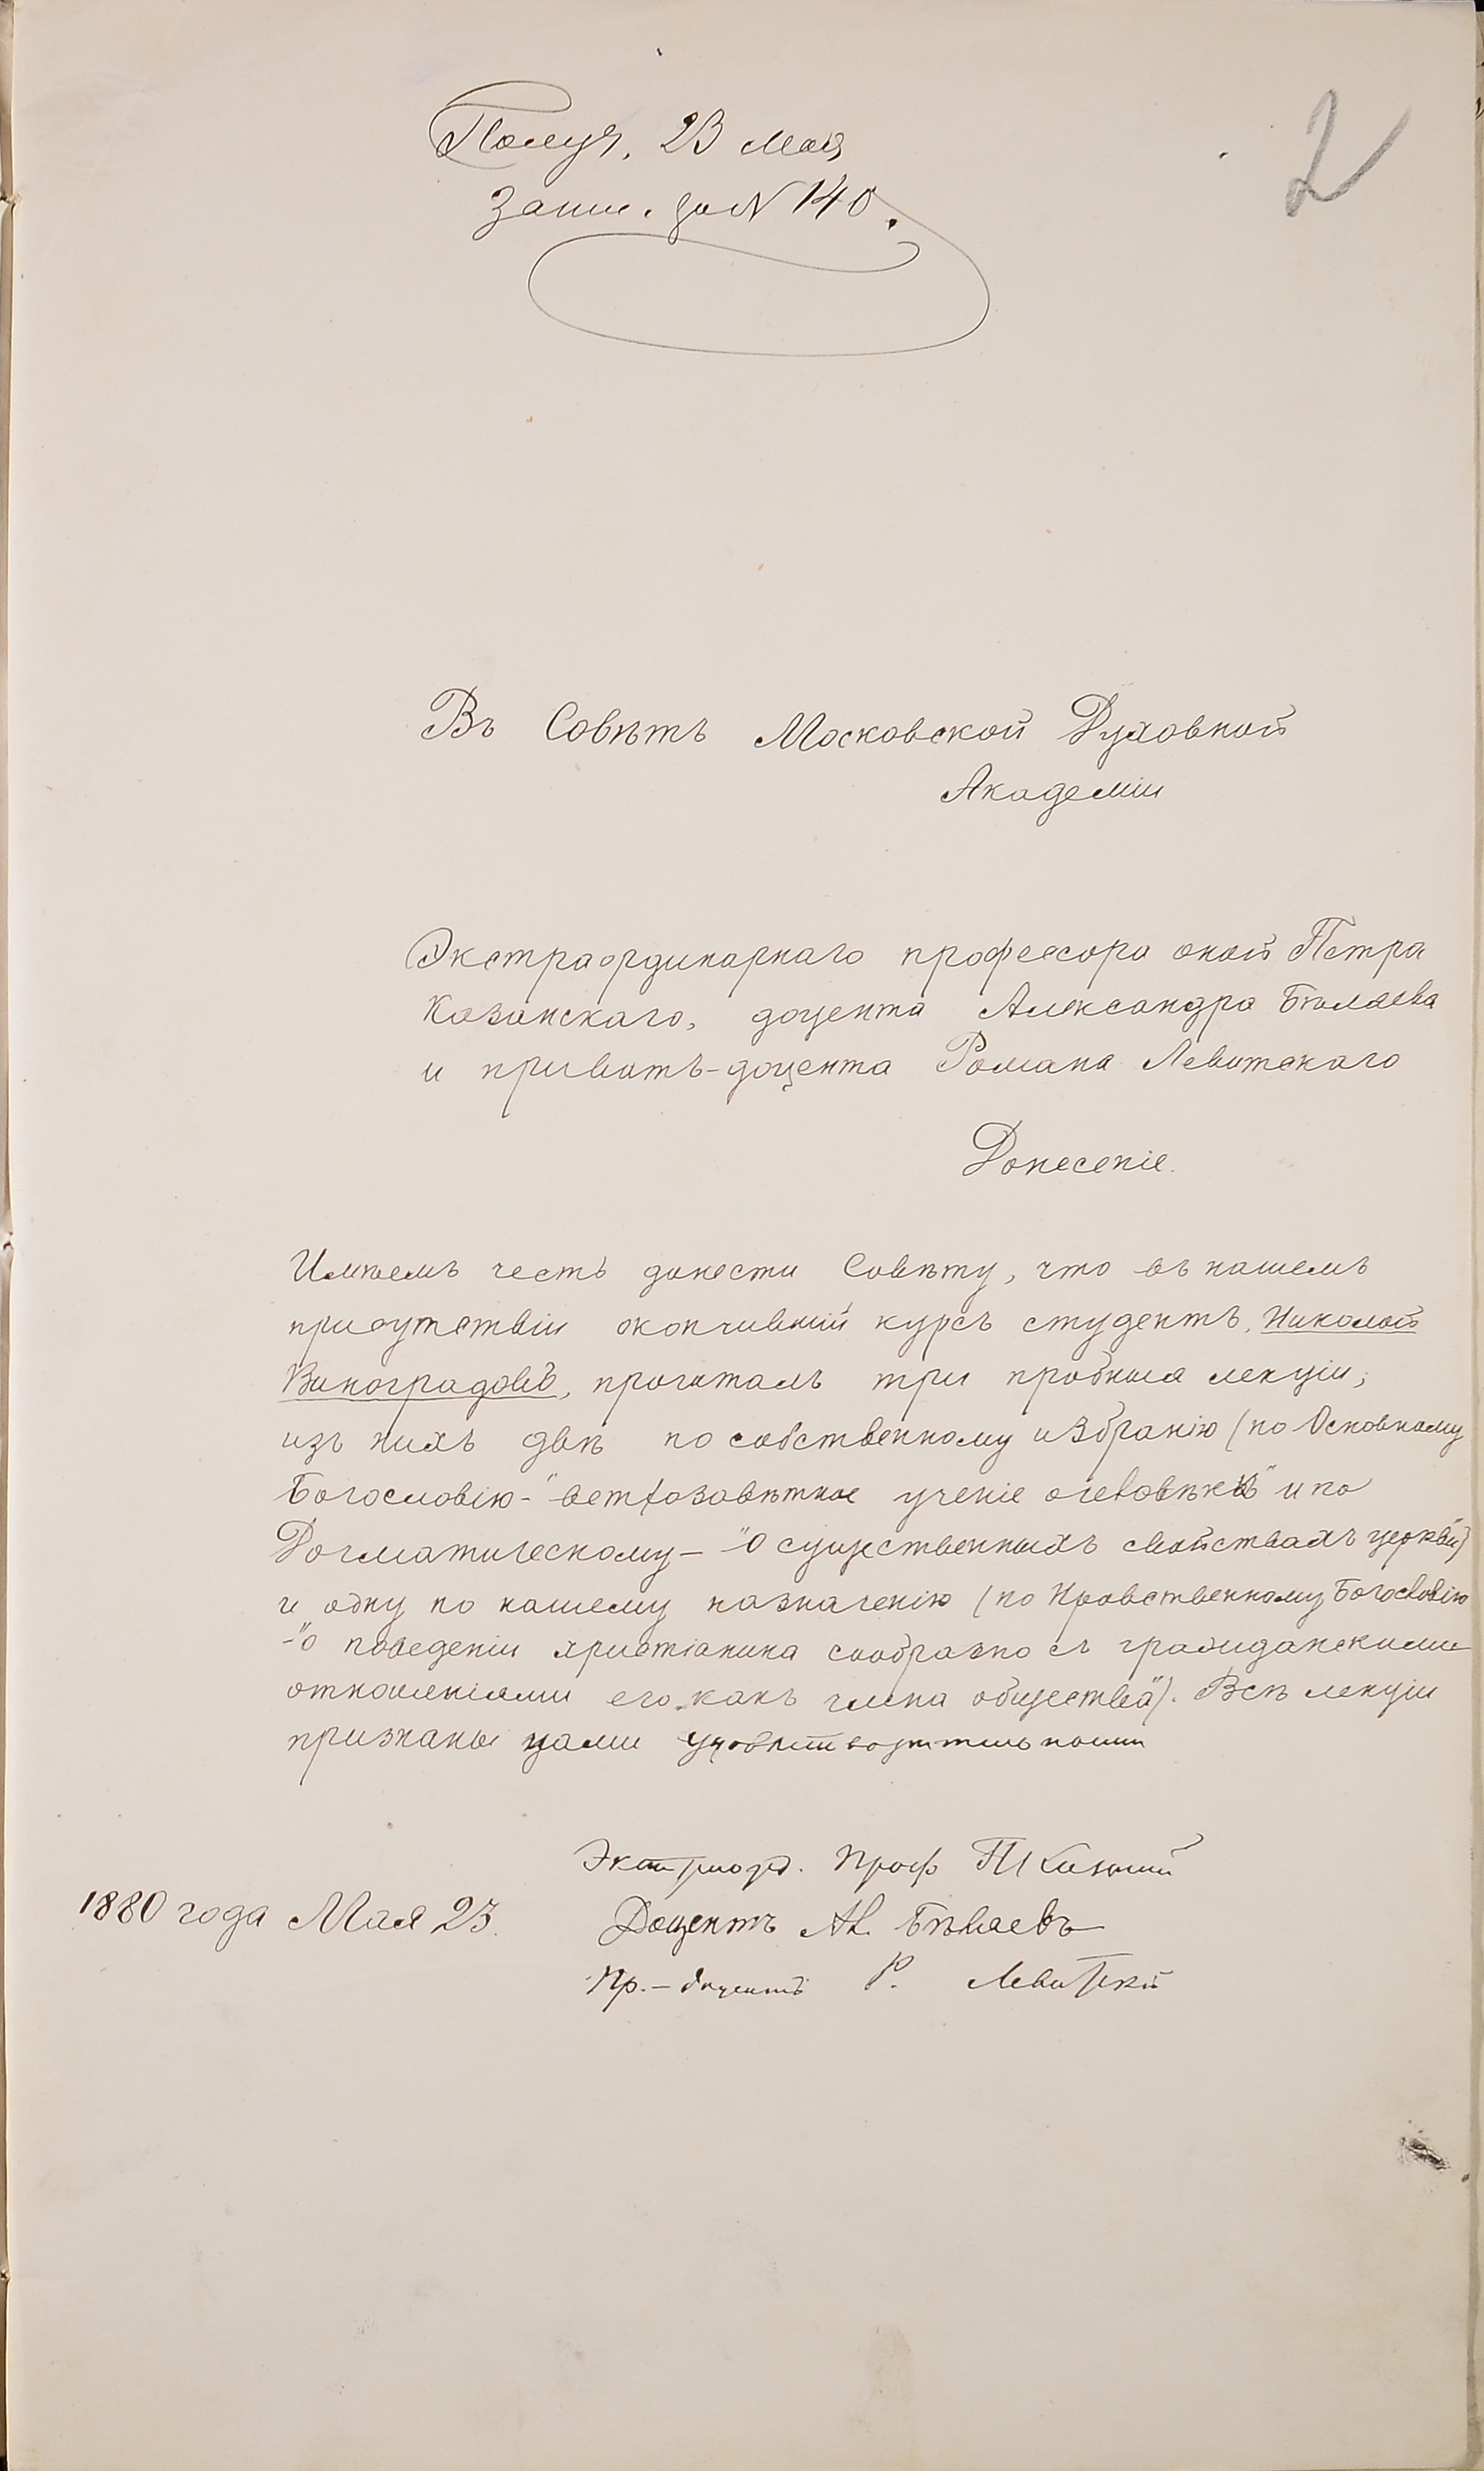 Получ. 23 мая
2
Запис. за N 140.
Въ Совѣтъ Московской Духовной
Академіи
Экстраординарнаго профессора оной Петра
Казанскаго, доцента Александра Бѣляева
и приватъ-доцента Романа Левитскаго
Донесеніе.
Имѣемъ честь донести Совѣту, что въ нашемъ
присутствіи окончившій курсъ студентъ, Николай
Виноградовъ, прочиталъ три пробныя лекціи,
изъ нихъ двѣ по собственному избранію (по Основному
Богословію-"ветхозавѣтное ученіе о человѣкѣ" и по
Догматическому- "О существенныхъ свойствахъ церкви")
и одну по нашему назначенію (по Нравственному Богословію
-"о поведеніи христіанина сообразно съ гражданскими
отношеніями его какъ члена общества"). Всѣ лекціи
признаны нами удовлетворительными
Экстраорд. Проф П Казанскій
1880 года Мая 23. Доцентъ Ал. Бѣляевъ
Пр.-доцентъ Р. Левитскій